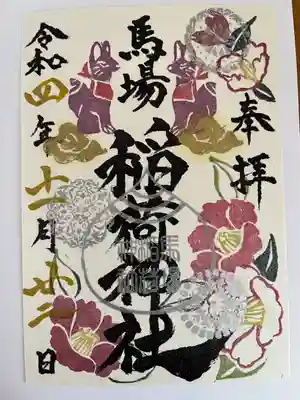 奉拝
馬場
稲荷神社
令和四年十一月廿二日